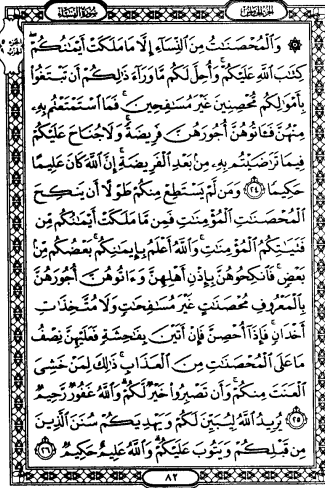 الجزء الخامس
سورة النساء
۞ وَالْمُحْصَنَاتُ مِنَ النِّسَاءِ إِلَّا مَا مَلَكَتْ أَيْمَانُكُمْ
كِتَابَ اللَّهِ عَلَيْكُمْ وَأُحِلَّ لَكُمْ مَا وَرَاءَ ذَٰلِكُمْ أَنْ تَبْتَغُوا
بِأَمْوَالِكُمْ مُحْصِنِينَ غَيْرَ مُسَافِحِينَ فَمَا اسْتَمْتَعْتُمْ بِهِ
مِنْهُنَّ فَآتُوهُنَّ أُجُورَهُنَّ فَرِيضَةً وَلَا جُنَاحَ عَلَيْكُمْ
فِيمَا تَرَاضَيْتُمْ بِهِ مِنْ بَعْدِ الْفَرِيضَةِ إِنَّ اللَّهَ كَانَ عَلِيمًا
حَكِيمًا ٢٤ وَمَنْ لَمْ يَسْتَطِعْ مِنْكُمْ طَوْلًا أَنْ يَنْكِحَ
الْمُحْصَنَاتِ الْمُؤْمِنَاتِ فَمِنْ مَا مَلَكَتْ أَيْمَانُكُمْ مِنْ
فَتَيَاتِكُمُ الْمُؤْمِنَاتِ وَاللَّهُ أَعْلَمُ بِإِيمَانِكُمْ بَعْضُكُمْ مِنْ
بَعْضٍ فَانْكِحُوهُنَّ بِإِذْنِ أَهْلِهِنَّ وَآتُوهُنَّ أُجُورَهُنَّ
بِالْمَعْرُوفِ مُحْصَنَاتٍ غَيْرَ مُسَافِحَاتٍ وَلَا مُتَّخِذَاتِ
أَخْدَانٍ فَإِذَا أُحْصِنَّ فَإِنْ أَتَيْنَ بِفَاحِشَةٍ فَعَلَيْهِنَّ نِصْفُ
مَا عَلَى الْمُحْصَنَاتِ مِنَ الْعَذَابِ ذَٰلِكَ لِمَنْ خَشِيَ
الْعَنَتَ مِنْكُمْ وَأَنْ تَصْبِرُوا خَيْرٌ لَكُمْ وَاللَّهُ غَفُورٌ رَحِيمٌ
٢٥ يُرِيدُ اللَّهُ لِيُبَيِّنَ لَكُمْ وَيَهْدِيَكُمْ سُنَنَ الَّذِينَ
مِنْ قَبْلِكُمْ وَيَتُوبَ عَلَيْكُمْ وَاللَّهُ عَلِيمٌ حَكِيمٌ ٢٦
٨٢